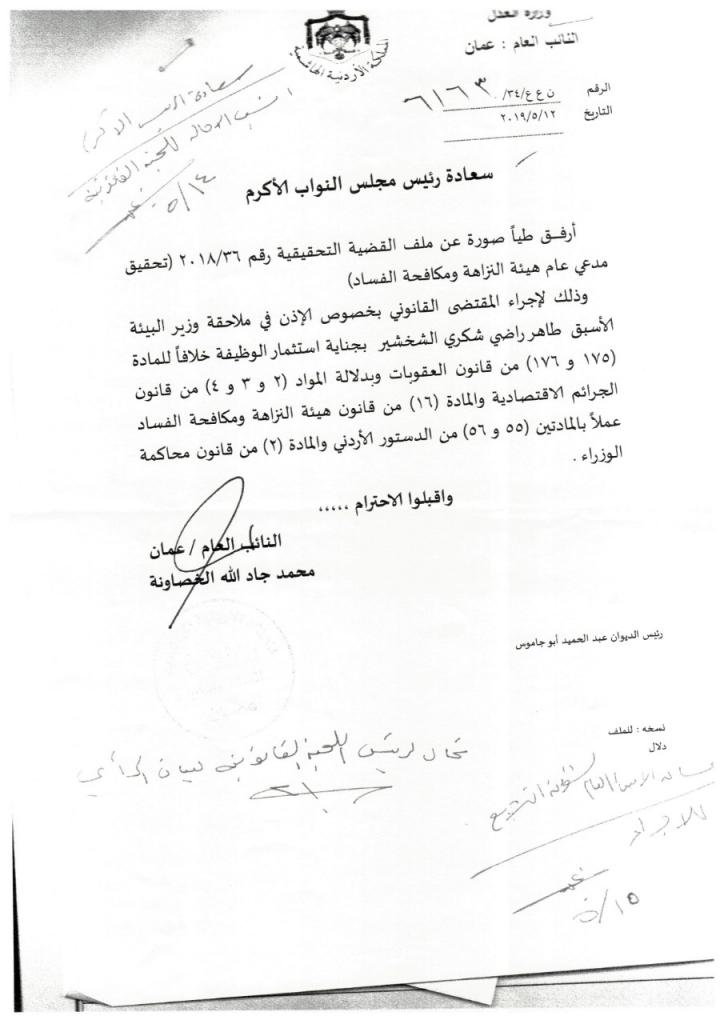 وزارة العدل
النائب العام : عمان
المملكة الأردنية الهاشمية
الرقم ن ع ع/٣٤/ ٦١٦٣
التاريخ ٢٠١٩/٥/١٢
سعادة الرئيس الأكرم
الإحالة للجنة القانونية
٥/١٤
سعادة رئيس مجلس النواب الأكرم
أرفق طياً صورة عن ملف القضية التحقيقية رقم ٢٠١٨/٣٦ (تحقيق
مدعي عام هيئة النزاهة ومكافحة الفساد)
وذلك لإجراء المقتضى القانوني بخصوص الإذن في ملاحقة وزير البيئة
الأسبق طاهر راضي شكري الشخشير بجناية استثمار الوظيفة خلافاً للمادة
(١٧٥ و ١٧٦) من قانون العقوبات وبدلالة المواد (٢ و ٣ و ٤) من قانون
الجرائم الاقتصادية والمادة (١٦) من قانون هيئة النزاهة ومكافحة الفساد
عملاً بالمادتين (٥٥ و ٥٦) من الدستور الأردني والمادة (٢) من قانون محاكمة
الوزراء .
واقبلوا الاحترام .....
النائب العام / عمان
محمد جاد الله الخصاونة
رئيس الديوان عبد الحميد أبو جاموس
نسخه : للملف
دلال
تحال لرئيس اللجنة القانونية لبيان الرأي
العام لشؤون التشريع
للإجراء
٥/١٥